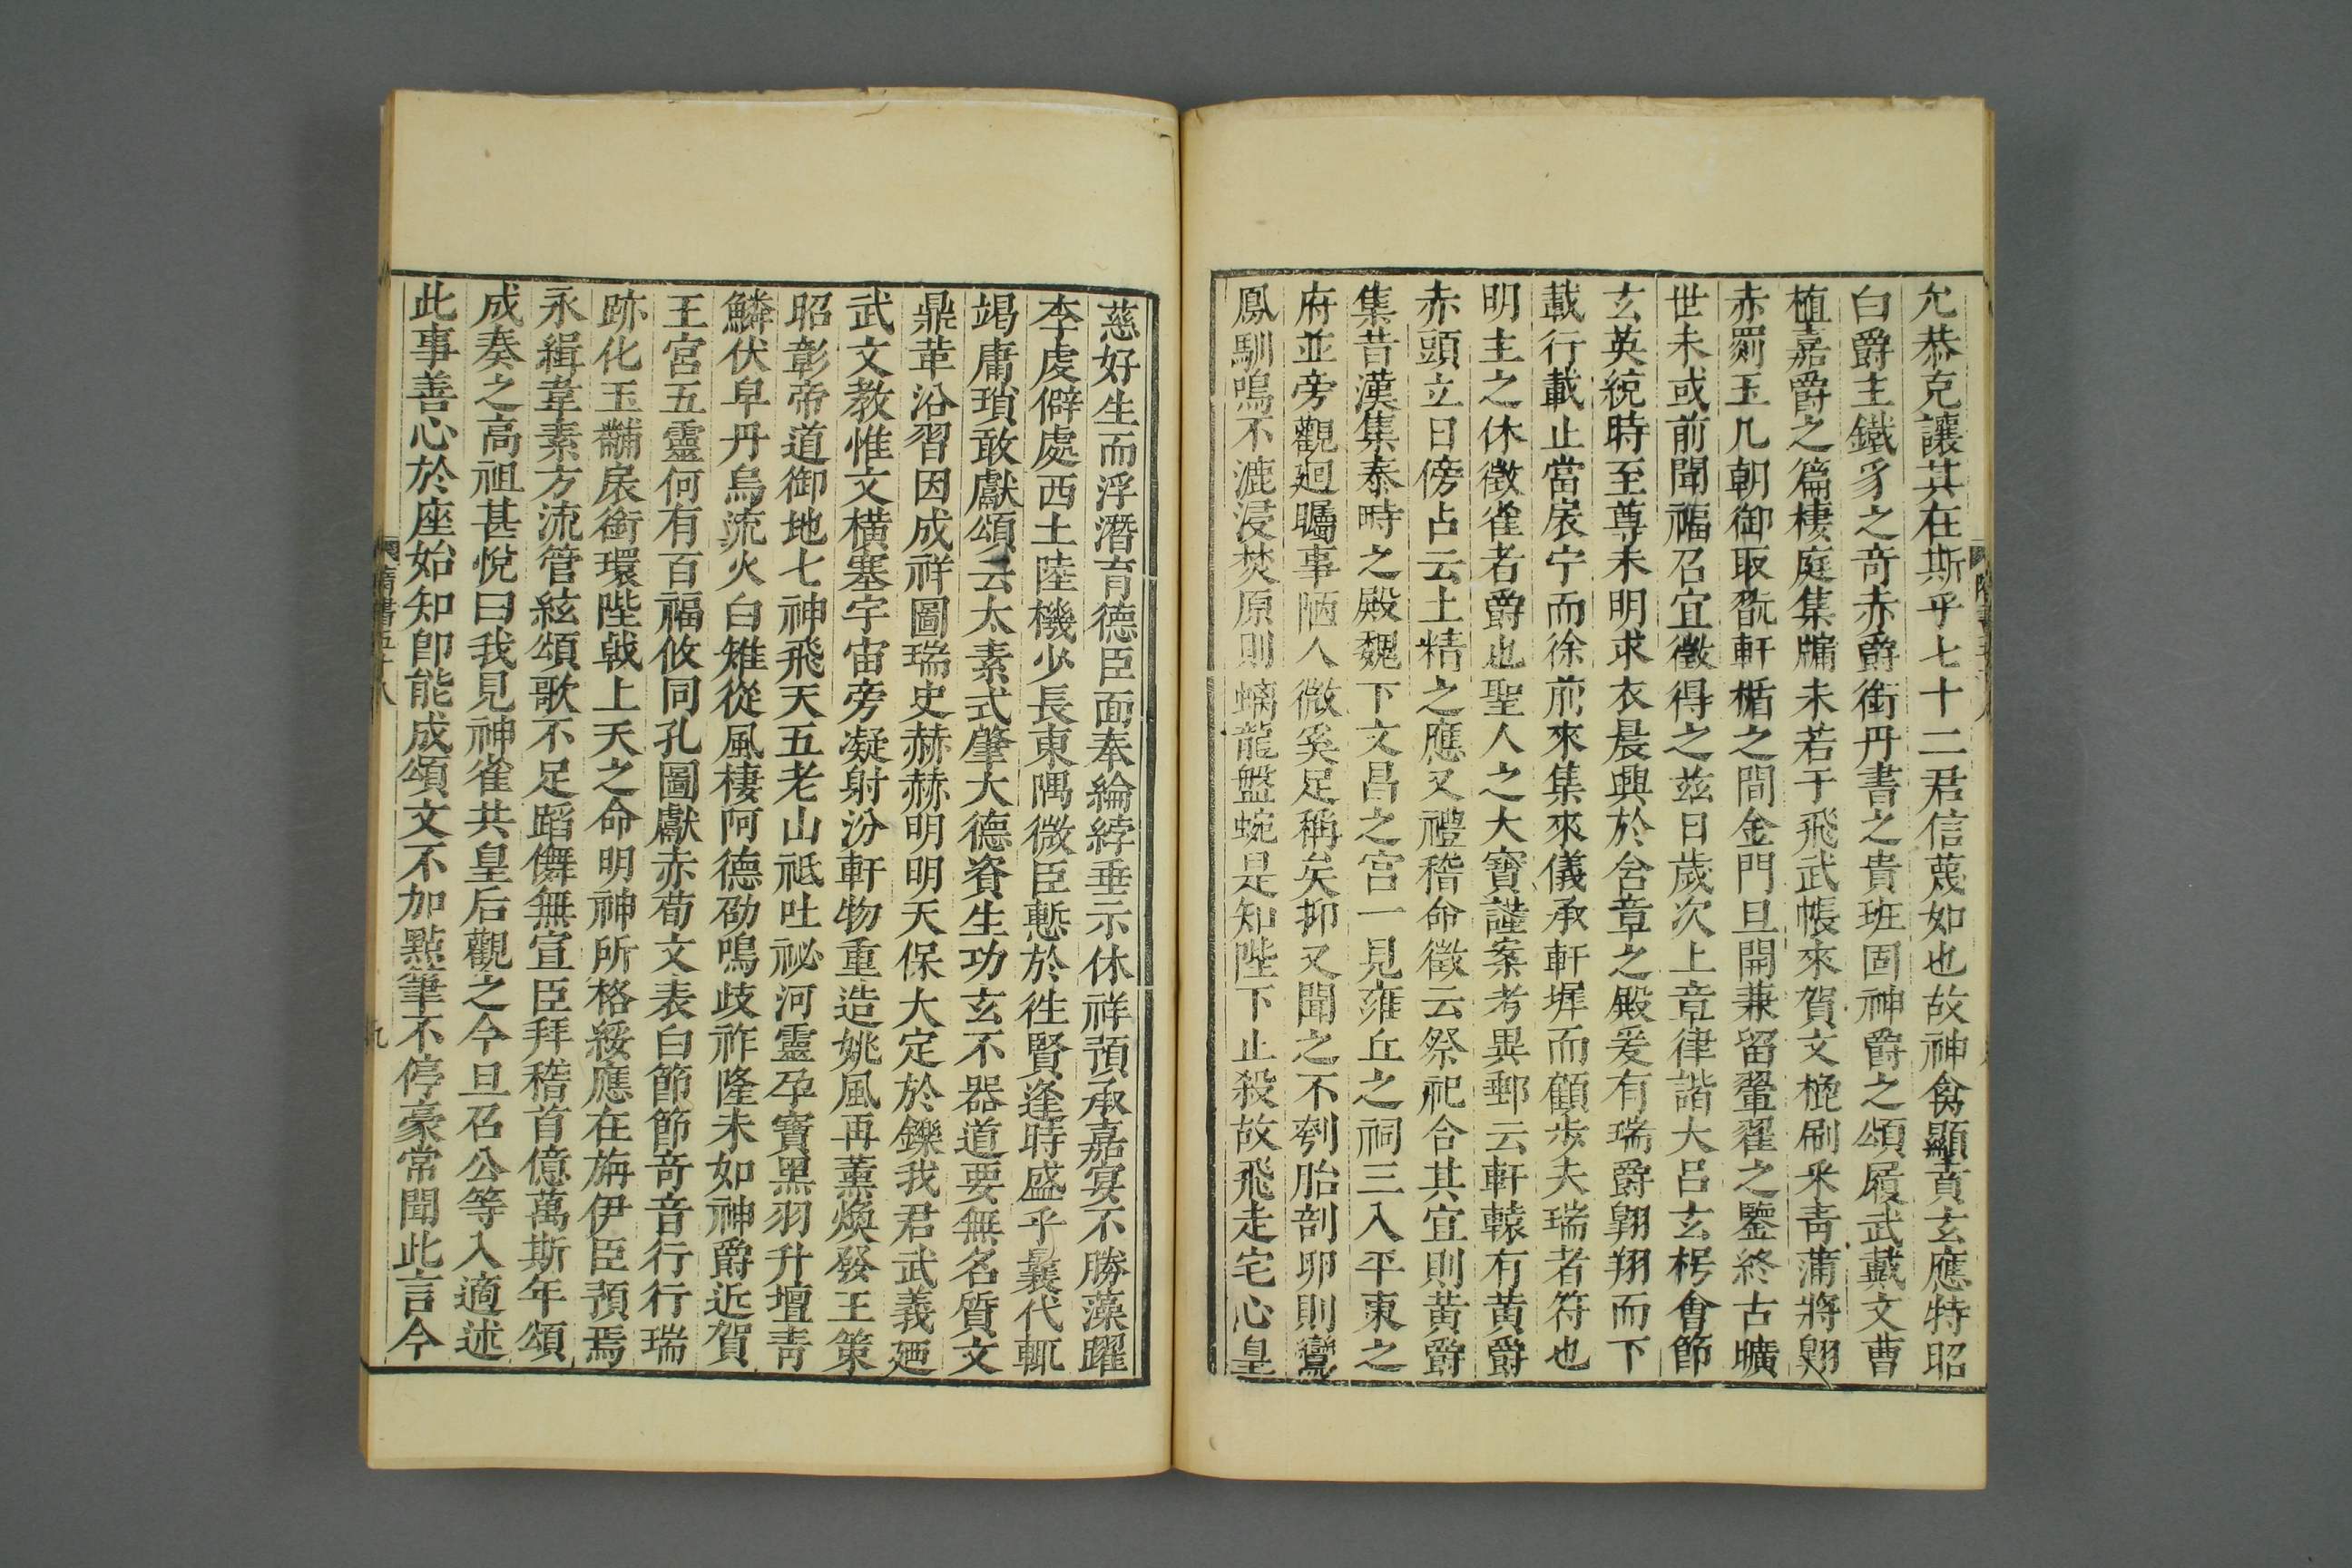 允恭克讓其在斯乎七十二君信蔑如也故神禽顯賁玄應特昭
白爵主鐵豸之奇赤爵銜丹書之貴班固神爵之頌履武戴文曹
植嘉爵之篇棲庭集牖未若于飛武帳來賀文㮰刷采青蒲將翱
赤罽玉几朝御取翫軒楯之間金門旦開兼留翬翟之鑒終古曠
世未或前聞福召宜徵得之茲日歲次上章律諧大呂玄枵會節
玄英統時至尊未明求衣晨興於含章之殿爰有瑞爵翱翔而下
載行載止當扆宁而徐前來集來儀承軒墀而顧步夫瑞者符也
明主之休徵雀者爵也聖人之大寶謹案考異郵云軒轅有黃爵
赤頭立日傍占云土精之應又禮稽命徵云祭祀合其宜則黃爵
集昔漢集泰畤之殿魏下文昌之宮一見雍丘之祠三入平東之
府並旁觀廻矚事陋人微奚足稱矣抑又聞之不刳胎剖卵則鸞
鳳馴鳴不漉浸焚原則螭龍盤蜿是知陛下止殺故飛走宅心皇
慈好生而浮潛育德臣面奉綸綍垂示休祥預承嘉宴不勝藻躍
李虔僻處西土陸機少長東隅微臣慙於徃賢逢時盛乎曩代輒
竭庸瑣敢獻頌云太素式肇大德資生功玄不器道要無名質文
鼎革沿習因成祥圖瑞史赫赫明明天保大定於鑠我君武義廼
武文教惟文橫塞宇宙旁凝射汾軒物重造姚風再薰煥發王策
昭彰帝道御地七神飛天五老山祗吐祕河靈孕寶黑羽升壇青
鱗伏皁丹烏流火白雉從風棲阿德劭鳴歧祚隆未如神爵近賀
王宮五靈何有百福攸同孔圖獻赤荀文表白節節奇音行行瑞
跡化玉黼扆銜環陛戟上天之命明神所格綏應在旃伊臣預焉
永緝韋素方流管絃頌歌不足蹈儛無宣臣拜稽首億萬斯年頌
成奏之高祖甚悅曰我見神雀共皇后觀之今旦召公等入適述
此事善心於座始知即能成頌文不加點筆不停毫常聞此言今
隋書五十八
九